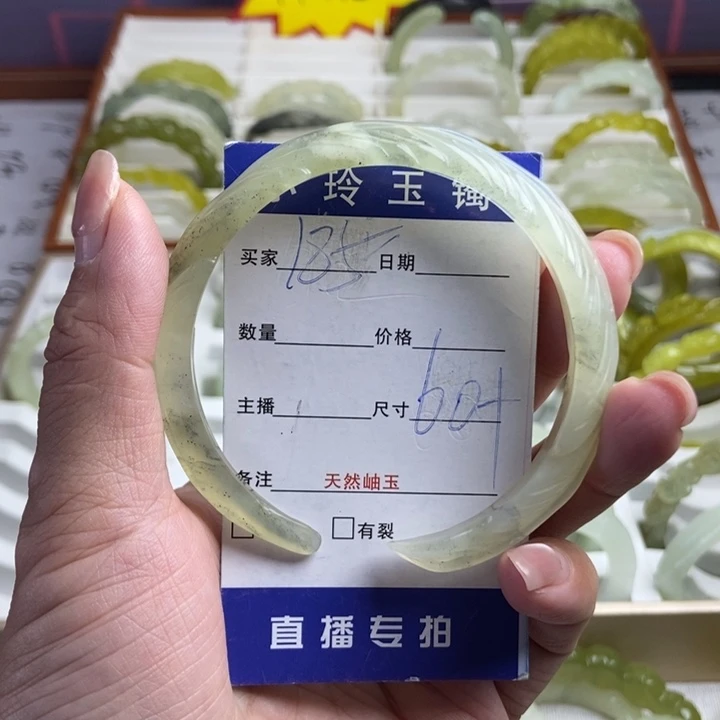 玲玉镯
买家 185 日期
数量 价格
主播 尺寸 60+
备注 天然岫玉
有裂
直播专拍